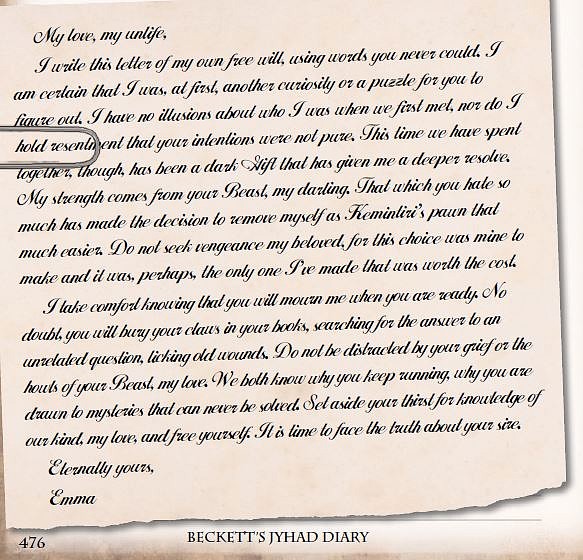 My love, my unlife,
I write this letter of my own free will, using words you never could. I
am certain that I was, at first, another curiosity or a puzzle for you to
figure out. I have no illusions about who I was when we first met, nor do I
hold resentment that your intentions were not pure. This time we have spent
together, though, has been a dark Gift that has given me a deeper resolve.
My strength comes from your Beast, my darling. That which you hate so
much has made the decision to remove myself as Kemintiri's pawn that
much easier. Do not seek vengeance my beloved, for this choice was mine to
make and it was, perhaps, the only one I've made that was worth the cost.
I take comfort knowing that you will mourn me when you are ready. No
doubt, you will bury your claws in your books, searching for the answer to an
unrelated question, licking old wounds. Do not be distracted by your grief or the
howls of your Beast, my love. We both know why you keep running, why you are
drawn to mysteries that can never be solved. Set aside your thirst for knowledge of
our kind, my love, and free yourself. It is time to face the truth about your sire.
Eternally yours,
Emma
476 BECKETT'S JYHAD DIARY